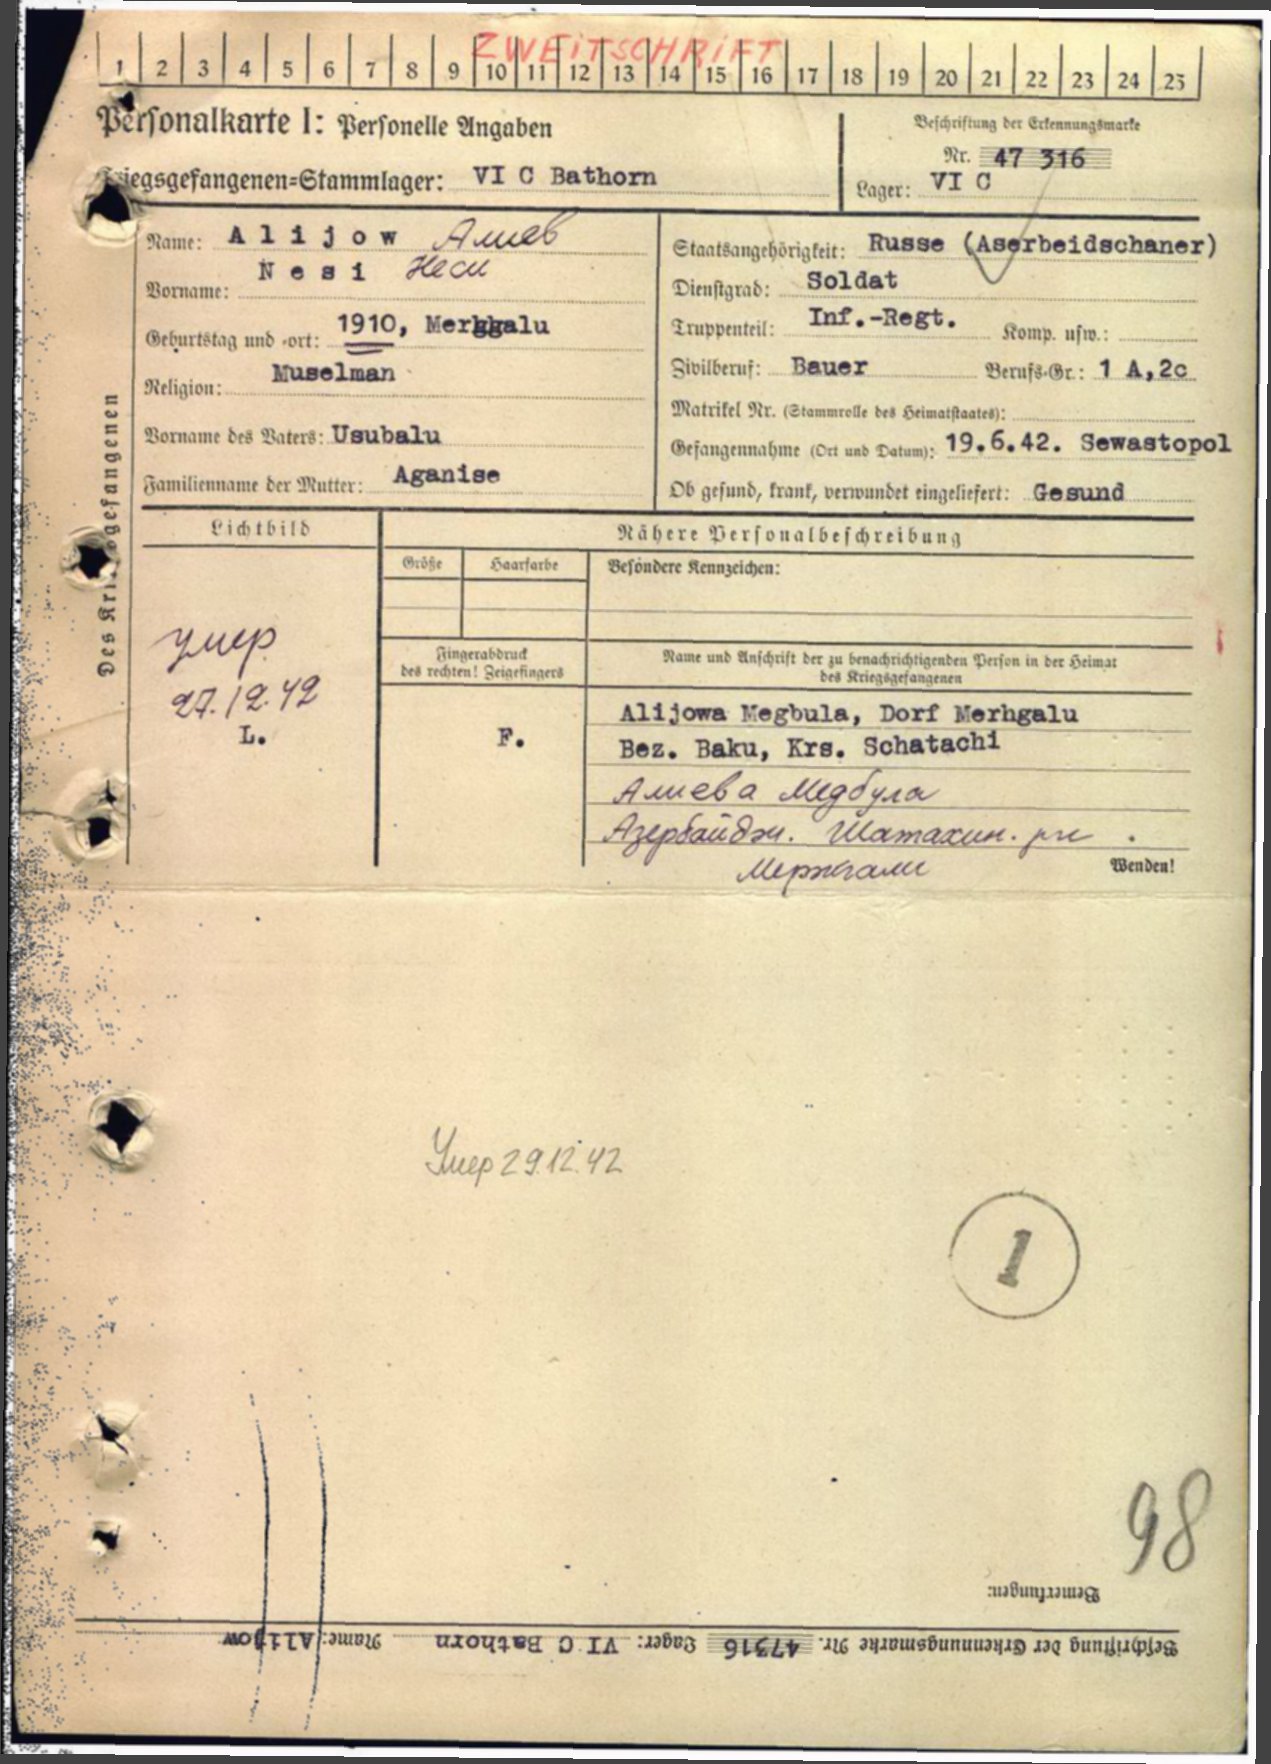 ZWEITSCHRIFT
1 2 3 4 5 6 7 8 9 10 11 12 13 14 15 16 17 18 19 20 21 22 23 24 25
Personalkarte I: Personelle Angaben
Kriegsgefangenen=Stammlager: VI C Bathorn
Beschriftung der Erkennungsmarke
Nr. 47 316
Lager: VI C
Des Kriegsgefangenen
Name: Alijow Алиев
Vorname: Nesi Неси
Geburtstag und -ort: 1910, Merggalu
Religion: Muselman
Vorname des Vaters: Usubalu
Familienname der Mutter: Aganise
Staatsangehörigkeit: Russe (Aserbeidschaner)
Dienstgrad: Soldat
Truppenteil: Inf.-Regt. Komp. usw.:
Zivilberuf: Bauer Berufs-Gr.: 1 A,2c
Matrikel Nr. (Stammrolle des Heimatstaates):
Gefangennahme (Ort und Datum): 19.6.42. Sewastopol
Ob gesund, krank, verwundet eingeliefert: Gesund
Lichtbild
умер
27.12.42
L.
Nähere Personalbeschreibung
Größe Haarfarbe Besondere Kennzeichen:
Fingerabdruck
des rechten! Zeigefingers
F.
Name und Anschrift der zu benachrichtigenden Person in der Heimat
des Kriegsgefangenen
Alijowa Megbula, Dorf Merhgalu
Bez. Baku, Krs. Schatachi
Алиева Медбула
Азербайдж. Шатахин. р-н
Мержгали
Wenden!
Умер 29.12.42
1
98
Bemerkungen:
Beschriftung der Erkennungsmarke Nr. 47316 Lager: VI C Bathorn Name: Alijow